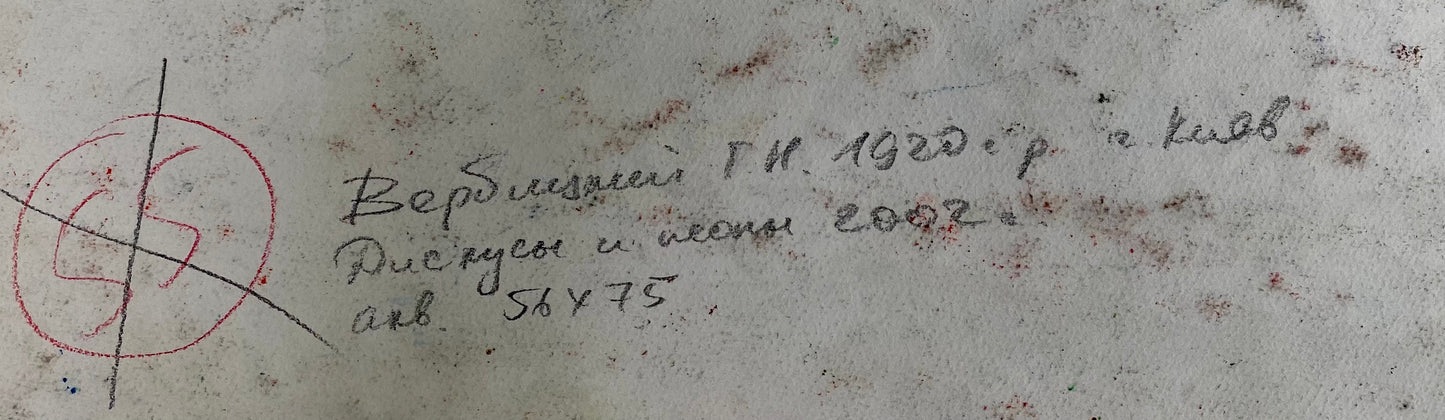 55
Вербицкий Г.Н. 1920 г.р г. Киев.
Дискусы и неоны 2002 г.
акв. 56х75